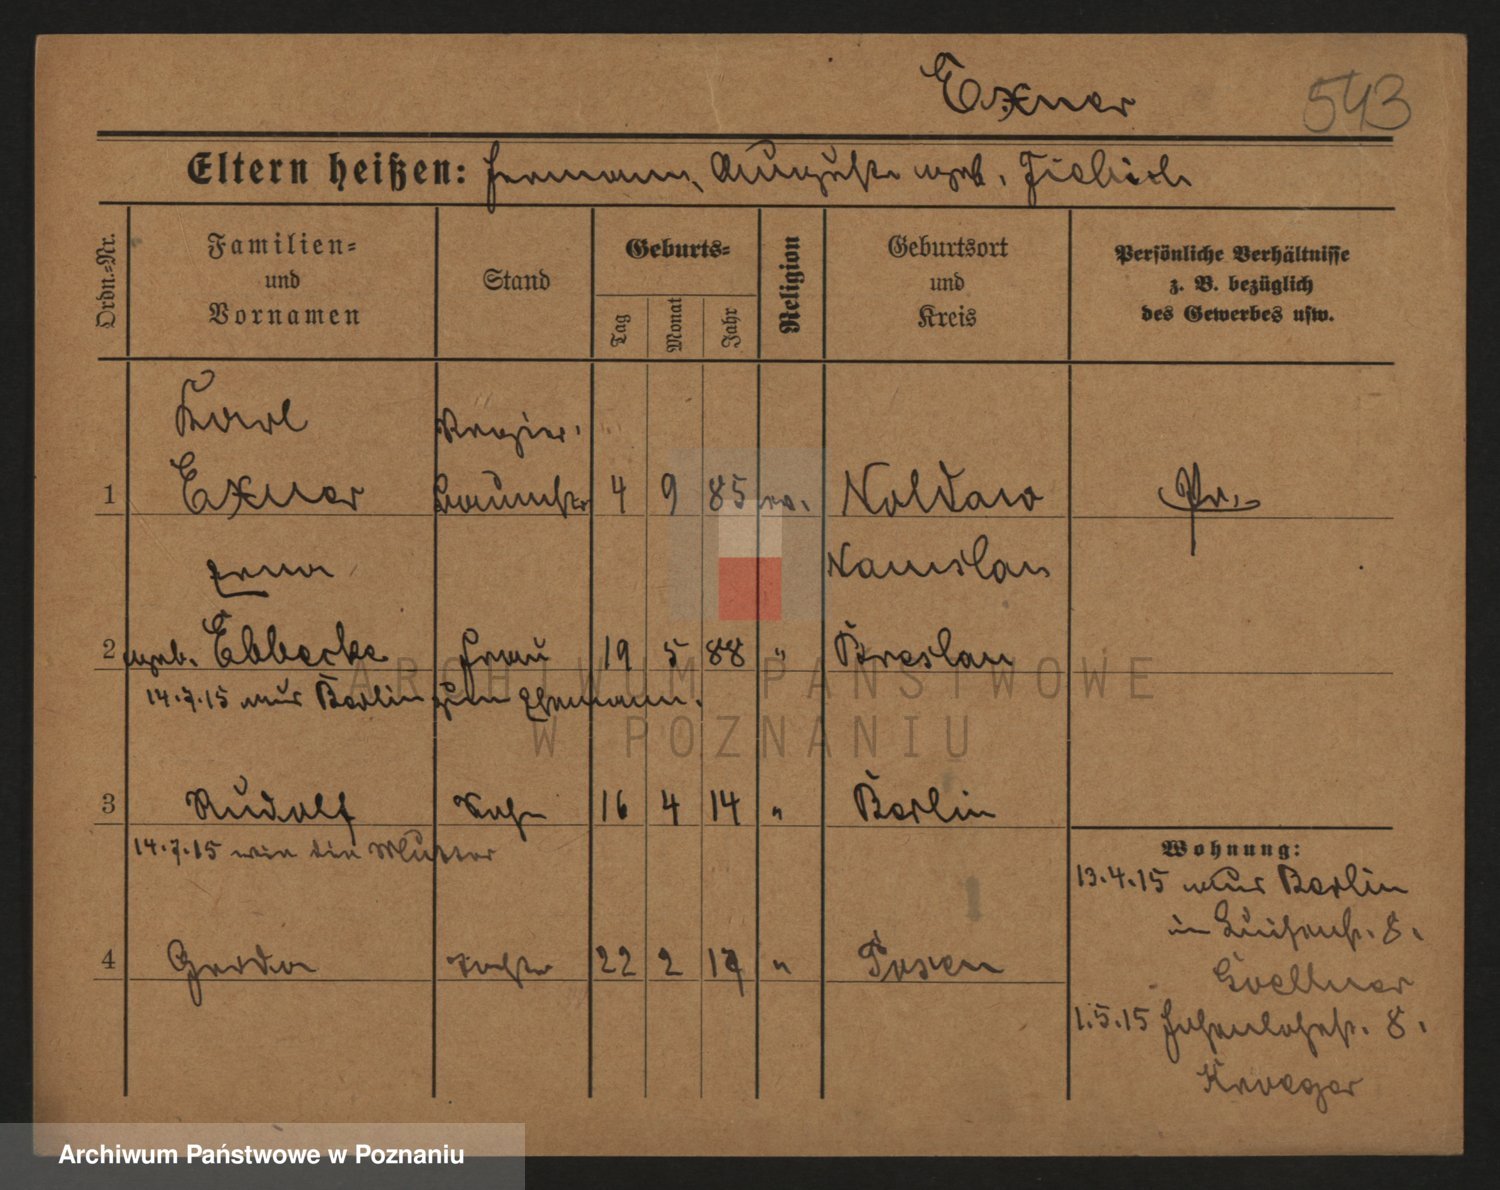 Exner 543
Eltern heißen: Hermann, Auguste geb. Fiebich
Ordn.-Nr.
Familien-
und
Vornamen
Stand
Geburts-
Tag
Monat
Jahr
Religion
Geburtsort
und
Kreis
Persönliche Verhältnisse
z. B. bezüglich
des Gewerbes usw.
Karl Regier.
1 Exner baumstr 4 9 85 ev. Noldau Pr.
Erna Namslau
2 geb. Ebbecke Frau 19 5 88 " Breslau
14.7.15 nur Berlin zum Ehemann.
3 Rudolf Sohn 16 4 14 " Berlin
14.7.15 wie die Mutter
4 Gerda Tochter 22 2 17 " Posen
Wohnung:
13.4.15 nur Berlin
in Luisenstr. 8.
Goellner
1.5.15 Hohenlohestr. 8.
Kroeger
ARCHIWUM PAŃSTWOWE
W POZNANIU
Archiwum Państwowe w Poznaniu